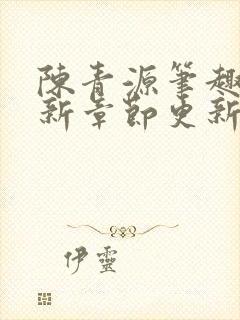 陳青源筆趣
新章節更新
伊靈